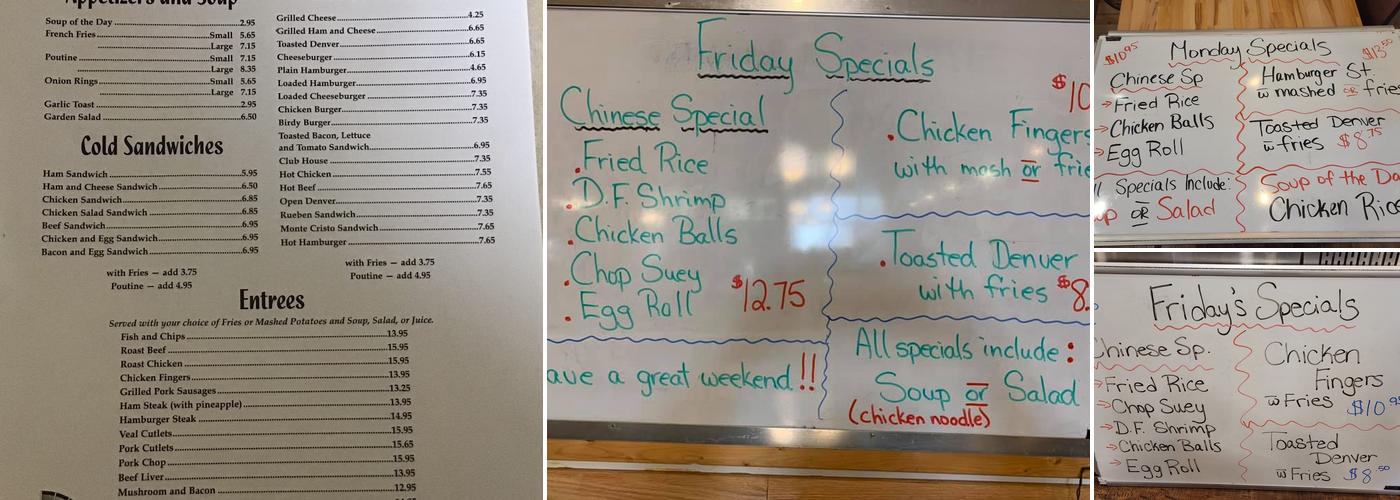 Appetizers and Soup
Soup of the Day 2.95
French Fries Small 5.65
Large 7.15
Poutine Small 7.15
Large 8.35
Onion Rings Small 5.65
Large 7.15
Garlic Toast 2.95
Garden Salad 6.50
Cold Sandwiches
Ham Sandwich 5.95
Ham and Cheese Sandwich 6.50
Chicken Sandwich 6.85
Chicken Salad Sandwich 6.85
Beef Sandwich 6.95
Chicken and Egg Sandwich 6.95
Bacon and Egg Sandwich 6.95
with Fries — add 3.75
Poutine — add 4.95
Grilled Cheese 4.25
Grilled Ham and Cheese 6.65
Toasted Denver 6.65
Cheeseburger 6.15
Plain Hamburger 4.65
Loaded Hamburger 6.95
Loaded Cheeseburger 7.35
Chicken Burger 7.35
Birdy Burger 7.35
Toasted Bacon, Lettuce
and Tomato Sandwich 6.95
Club House 7.35
Hot Chicken 7.55
Hot Beef 7.65
Open Denver 7.35
Rueben Sandwich 7.35
Monte Cristo Sandwich 7.65
Hot Hamburger 7.65
with Fries — add 3.75
Poutine — add 4.95
Entrees
Served with your choice of Fries or Mashed Potatoes and Soup, Salad, or Juice.
Fish and Chips 13.95
Roast Beef 15.95
Roast Chicken 15.95
Chicken Fingers 13.95
Grilled Pork Sausages 13.25
Ham Steak (with pineapple) 13.95
Hamburger Steak 14.95
Veal Cutlets 15.95
Pork Cutlets 15.65
Pork Chop 15.95
Beef Liver 13.95
Mushroom and Bacon 12.95
Friday Specials
Chinese Special
.Fried Rice
.D.F. Shrimp
.Chicken Balls
.Chop Suey
.Egg Roll $12.75
ave a great weekend!!
$10
.Chicken Fingers
with mash or frie
.Toasted Denver
with fries $8.
All specials include:
Soup or Salad
(chicken noodle)
Monday Specials
$10.95
Chinese Sp
→Fried Rice
→Chicken Balls
→Egg Roll
l Specials Include:
up OR Salad
Hamburger St.
w mashed OR fries
Toasted Denver
w fries $8.75
Soup of the Da
Chicken Rice
Friday's Specials
Chinese Sp.
→Fried Rice
→Chop Suey
→D.F. Shrimp
→Chicken Balls
→Egg Roll
Chicken
Fingers
w Fries $10.95
Toasted
Denver
w Fries $8.50